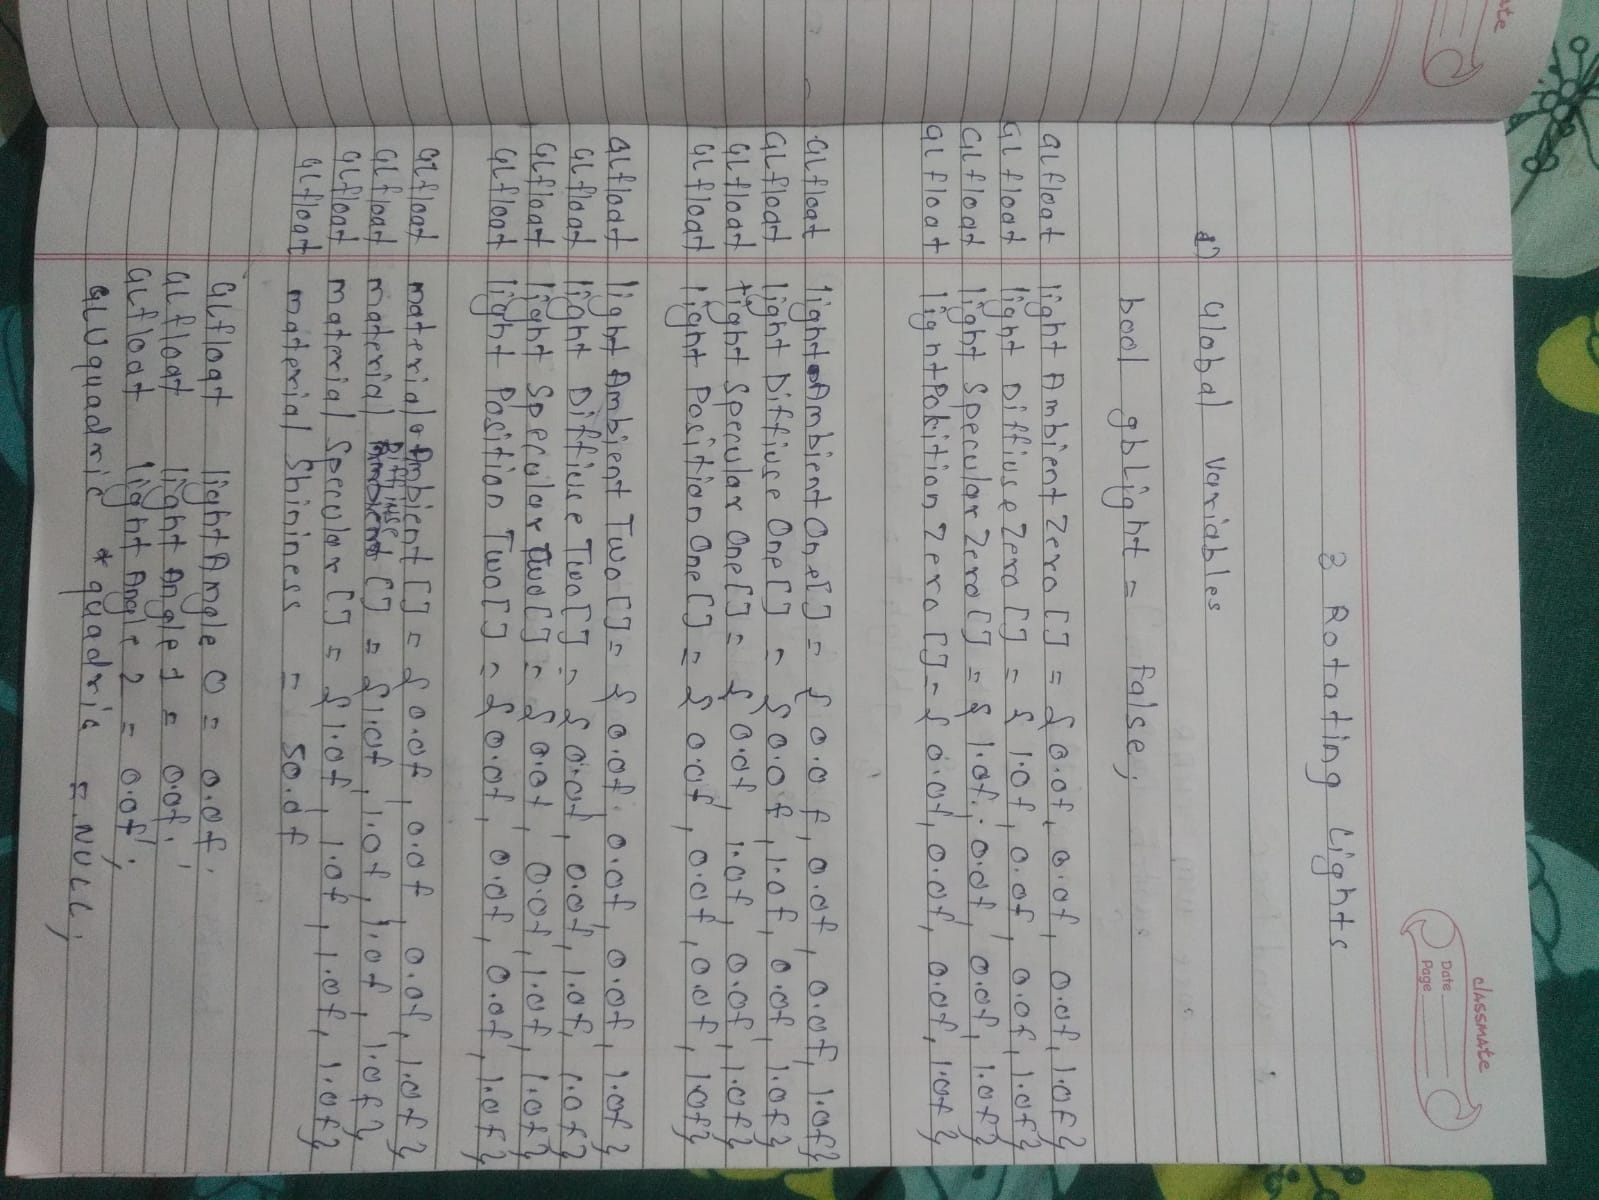 ate
classmate
Date
Page
3 Rotating Lights
1) Global Variables
bool gbLight = false;
GLfloat lightAmbientZero[] = {0.0f, 0.0f, 0.0f, 1.0f}
GLfloat lightDiffiuseZero[] = {1.0f, 0.0f, 0.0f, 1.0f}
GLfloat lightSpecularZero[] = {1.0f, 0.0f, 0.0f, 1.0f}
GLfloat lightPosition Zero[] = {0.0f, 0.0f, 0.0f, 1.0f}
GLfloat lightAmbient One[] = {0.0f, 0.0f, 0.0f, 1.0f}
GLfloat light Diffiuse One[] = {0.0f, 1.0f, 0.0f, 1.0f}
GLfloat light Specular One[] = {0.0f, 1.0f, 0.0f, 1.0f}
GLfloat light Position One[] = {0.0f, 0.0f, 0.0f, 1.0f}
GLfloat light Ambient Two[] = {0.0f, 0.0f, 0.0f, 1.0f}
GLfloat light Diffiuse Two[] = {0.0f, 0.0f, 1.0f, 1.0f}
GLfloat light Specular Two[] = {0.0f, 0.0f, 1.0f, 1.0f}
GLfloat light Position Two[] = {0.0f, 0.0f, 0.0f, 1.0f}
GLfloat material Ambient[] = {0.0f, 0.0f, 0.0f, 1.0f}
GLfloat material Diffiuse[] = {1.0f, 1.0f, 1.0f, 1.0f}
GLfloat material Specular[] = {1.0f, 1.0f, 1.0f, 1.0f}
GLfloat material Shininess = 50.0f
GLfloat lightAngle 0 = 0.0f;
GLfloat light Angle 1 = 0.0f;
GLfloat light Angle 2 = 0.0f;
GLUquadric *quadric = NULL;